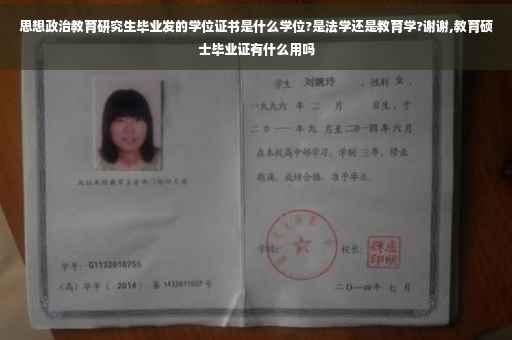 思想政治教育研究生毕业发的学位证书是什么学位?是法学还是教育学?谢谢,教育硕
士毕业证有什么用吗
学生 刘婉玲 、性别 女 、
一九九六 年 二 月 日生,于
二〇一一年九 月至二〇一四年六月
在本校高中部学习,学制 三年,修业
期满,成绩合格,准予毕业。
学校: 校长:
学号: G1132010755
(高)毕字 ( 2014 ) 第 1432011027 号
二〇一四年 七 月